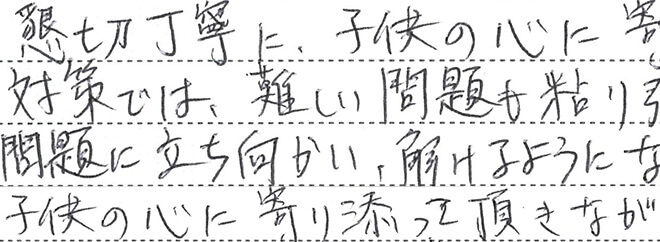 懇切丁寧に、子供の心に寄
対策では、難しい問題も粘り
問題に立ち向かい、解けるようにな
子供の心に寄り添って頂きなが